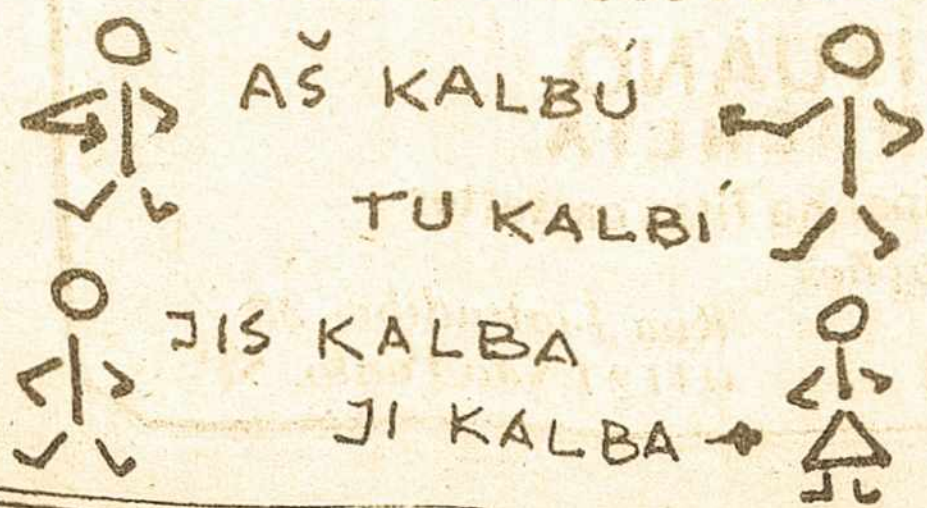 AŠ KALBÚ
TU KALBÍ
JIS KALBA
JI KALBA